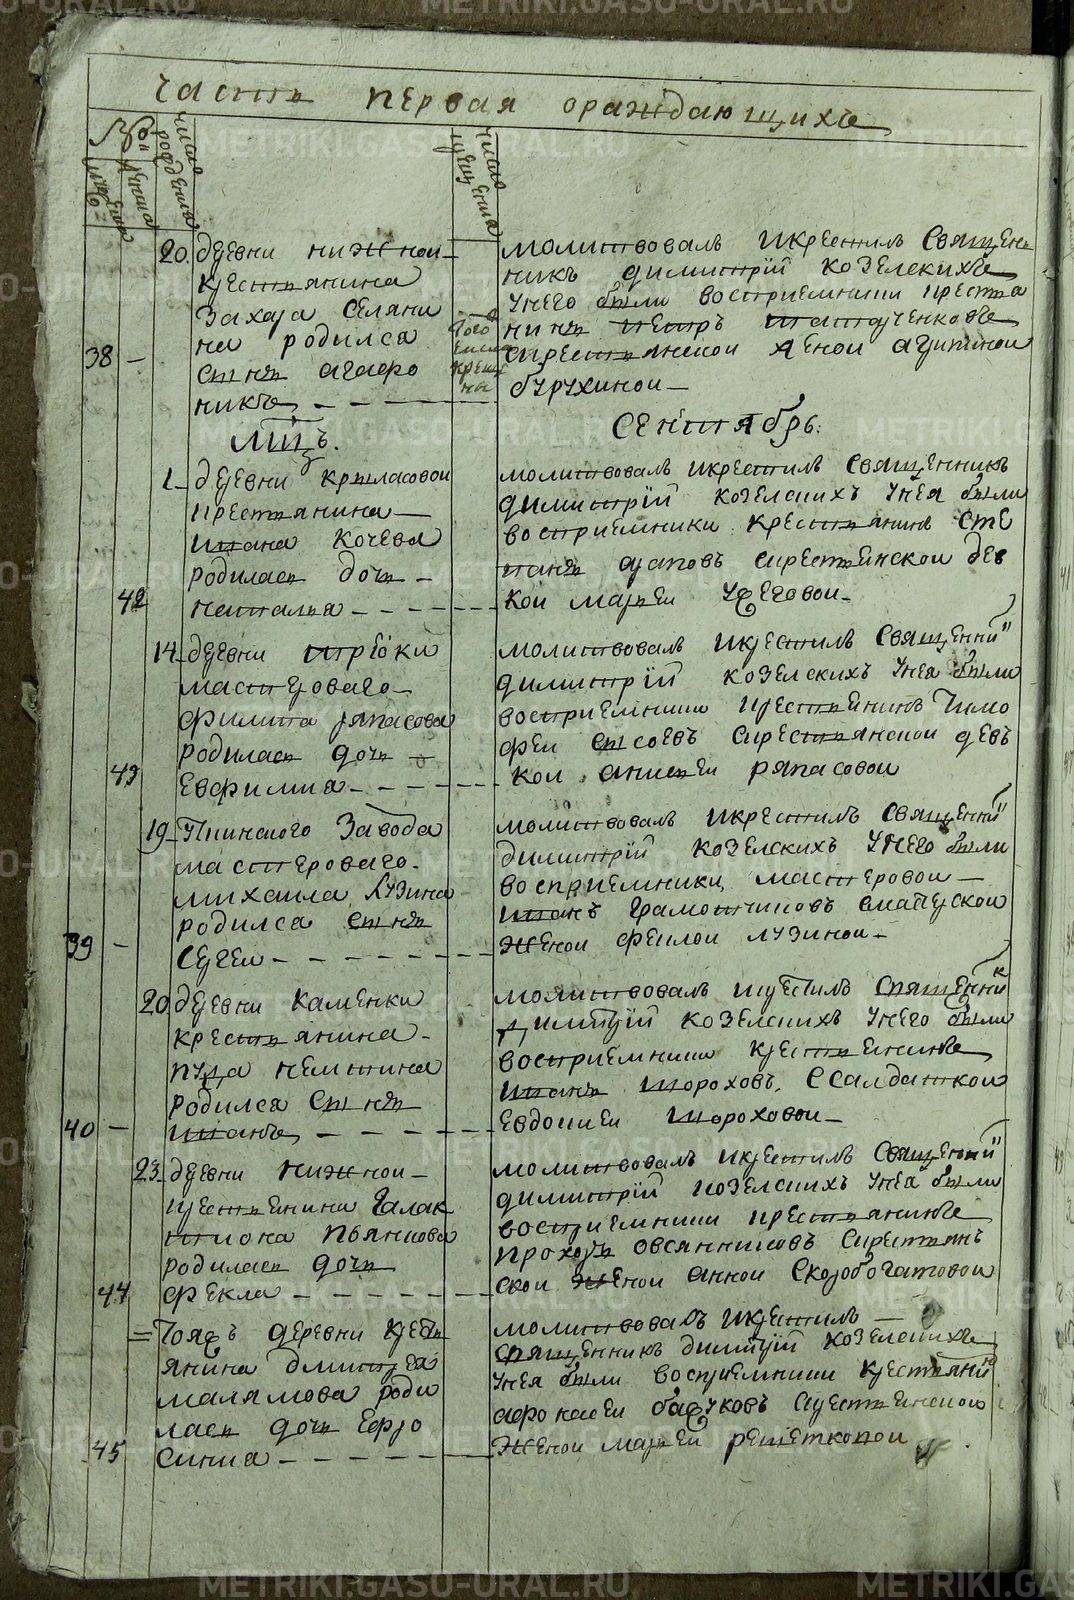 часть первая ораждающихъ
число рождения
число крещения
20. деревни нижнои
крестьянина
Захара Селяни
на родился
38 – сынъ агафо
никъ
Того числа крещены
молитвовалъ икрестилъ Священ
никъ димитрїй козелскихъ
унего были восприемники креста
нинъ петръ
скрестьянской женой агрипиной
бурухиной
мцъ. Сентябрь.
1 деревни крыласовой
крестьянина
ивана кочева
родилась дочь
42 наталья
молитвовалъ икрестилъ Священникъ
димитрїй козелскихъ унея были
восприемники крестьянинъ сте
панъ скрестьянской дев
кой марьей
14 деревни
мастероваго
филипа ряпасова
родилась дочь
43 Евфимиа
молитвовалъ икрестилъ Священни
димитрїй козелскихъ унея были
восприемники крестьенинъ Тимо
фей сысоевъ скрестьянской девъ
кой ряпасовой
19 Уткинского Завода
мастероваго
михаила лузина
родился сынъ
39 – Сергей
молитвовалъ икрестилъ Священни
димитрїй козелскихъ унего были
восприемники мастеровой
иванъ смастерской
женой феклой лузиной
20 деревни каменки
крестьянина
родился сынъ
40 – иванъ
молитвовалъ икрестилъ Священникъ
димтрїй козелскихъ унего были
восприемники крестьенинъ
иванъ шороховъ, ссалдаткой
евдокией шороховой
23 деревни нижной
крестьенина Галак
тиона пьянкова
родилась дочь
44 фекла
молитвовалъ икрестилъ Священни
димитрїй козелскихъ унея были
восприемники крестьянинъ
прохоръ овсянниковъ скрестьянъ
ской женой анной скоробогатовой
= Тояжъ деревни крестъ
янина дмитрея
малямова роди
лась дочь Ефро
45 синиа
молитвовалъ икрестилъ
священникъ димтрїй козелскихъ
унея были восприемники крестьяни
афонасей скрестьенской
женой марьей решетковой
METRIKI.GASO-URAL.RU